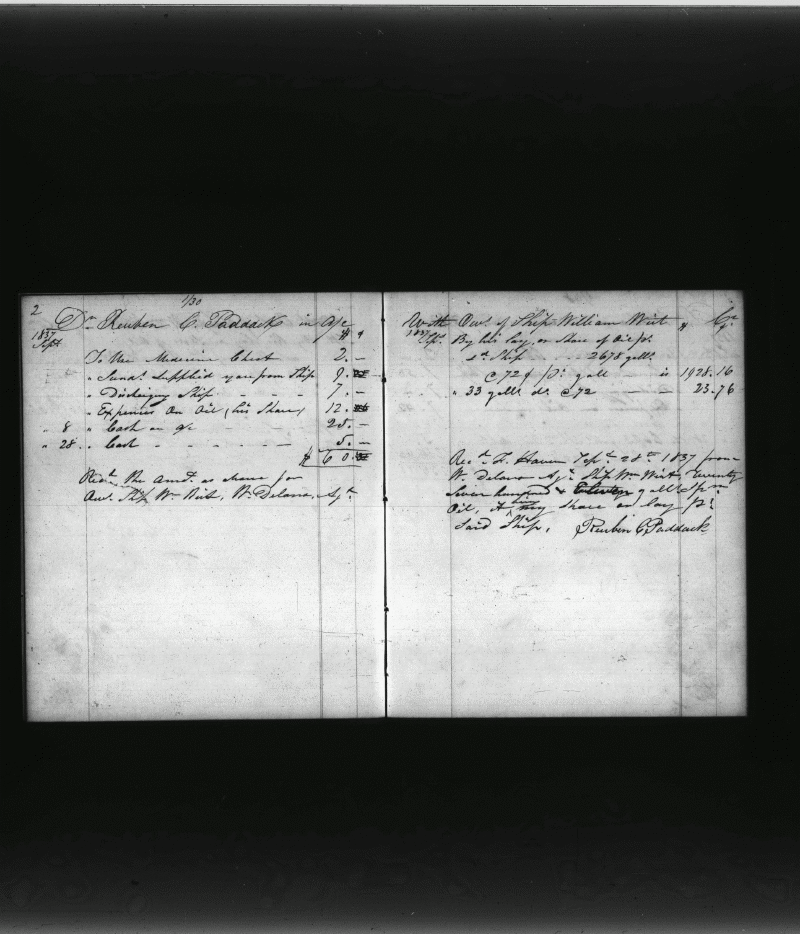 2
1/30
Dr Reuben C. Paddack in a/c
1837 $ ¢
Sept
To Use Medicine Chest 2. –
" Sunds Supplied you from Ship 9.
" Discharging Ship – – 7. –
" Expenses on Oil (his Share) 12.
" 8 " Cash on a/c – – – 25. –
" 28 " Cash – – – – 5. –
$ 60.
Recd the Amt as above for
Own. Ship Wm Wirt, W. Delano, Agt
With Own. of Ship William Wirt $ Cr
1837
Sept. By his Lay, or Share of Oil pr
sd Ship . . . . 2678 galls
@ 72¢ pr gall – is 1928.16
" 33 galls do @ 72 – 23.76
Recd F. Haven Sept 28th 1837 from
W. Delano Agt Ship Wm Wirt, Twenty
Seven hundred & Eleven galls Spm
Oil, my Share or Lay pr
Said Ship. Reuben C Paddack